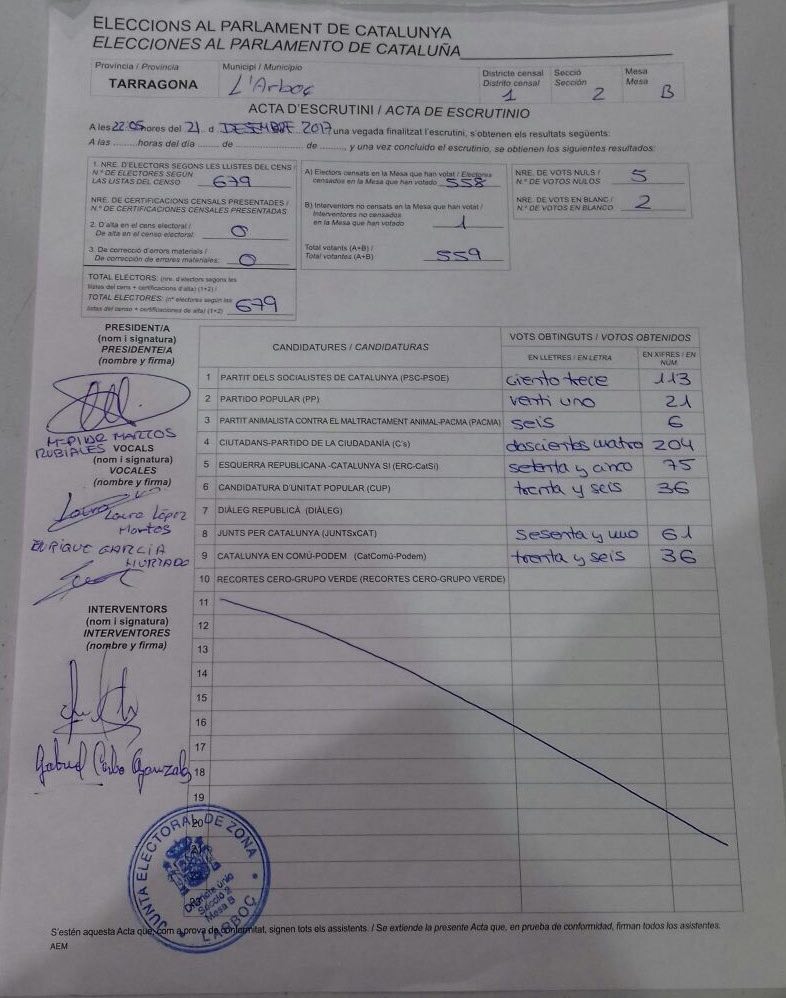 ELECCIONS AL PARLAMENT DE CATALUNYA
ELECCIONES AL PARLAMENTO DE CATALUÑA
Província / Provincia
TARRAGONA
Municipi / Municipio
L'Arboç
Districte censal
Distrito censal
1
Secció
Sección
2
Mesa
Mesa
B
ACTA D'ESCRUTINI / ACTA DE ESCRUTINIO
A les 22:05 hores del 21 d DESEMBRE 2017 una vegada finalitzat l'escrutini, s'obtenen els resultats següents:
A las ......... horas del día ...... de .................... de ........., y una vez concluido el escrutinio, se obtienen los siguientes resultados:
1. NRE. D'ELECTORS SEGONS LES LLISTES DEL CENS /
N.º DE ELECTORES SEGÚN
LAS LISTAS DEL CENSO 679
NRE. DE CERTIFICACIONS CENSALS PRESENTADES /
N.º DE CERTIFICACIONES CENSALES PRESENTADAS
2. D'alta en el cens electoral /
De alta en el censo electoral: 0
3. De correcció d'errors materials /
De corrección de errores materiales: 0
TOTAL ELECTORS: (nre. d'electors segons les
llistes del cens + certificacions d'alta) (1+2) /
TOTAL ELECTORES: (nº electores según las
listas del censo + certificaciones de alta) (1+2) 679
A) Electors censats en la Mesa que han votat / Electores
censados en la Mesa que han votado 558
B) Interventors no censats en la Mesa que han votat /
Interventores no censados
en la Mesa que han votado 1
Total votants (A+B) /
Total votantes (A+B) 559
NRE. DE VOTS NULS /
N.º DE VOTOS NULOS 5
NRE. DE VOTS EN BLANC /
N.º DE VOTOS EN BLANCO 2
PRESIDENT/A
(nom i signatura)
PRESIDENTE/A
(nombre y firma)
MARCOS
RUBIALES
VOCALS
(nom i signatura)
VOCALES
(nombre y firma)
Laura López
Martos
ENRIQUE GARCÍA
HURTADO
INTERVENTORS
(nom i signatura)
INTERVENTORES
(nombre y firma)
Gabriel
CANDIDATURES / CANDIDATURAS
VOTS OBTINGUTS / VOTOS OBTENIDOS
EN LLETRES / EN LETRA
EN XIFRES / EN NÚM.
1 PARTIT DELS SOCIALISTES DE CATALUNYA (PSC-PSOE) ciento trece 113
2 PARTIDO POPULAR (PP) venti uno 21
3 PARTIT ANIMALISTA CONTRA EL MALTRACTAMENT ANIMAL-PACMA (PACMA) seis 6
4 CIUTADANS-PARTIDO DE LA CIUDADANÍA (C's) doscientos cuatro 204
5 ESQUERRA REPUBLICANA -CATALUNYA SÍ (ERC-CatSí) setenta y cinco 75
6 CANDIDATURA D'UNITAT POPULAR (CUP) trenta y seis 36
7 DIÀLEG REPUBLICÀ (DIÀLEG)
8 JUNTS PER CATALUNYA (JUNTSxCAT) sesenta y uno 61
9 CATALUNYA EN COMÚ-PODEM (CatComú-Podem) trenta y seis 36
10 RECORTES CERO-GRUPO VERDE (RECORTES CERO-GRUPO VERDE)
11
12
13
14
15
16
17
18
19
20
JUNTA ELECTORAL DE ZONA
Districte únic
Secció 2
Mesa B
L'ARBOÇ
S'estén aquesta Acta que, com a prova de conformitat, signen tots els assistents. / Se extiende la presente Acta que, en prueba de conformidad, firman todos los asistentes.
AEM